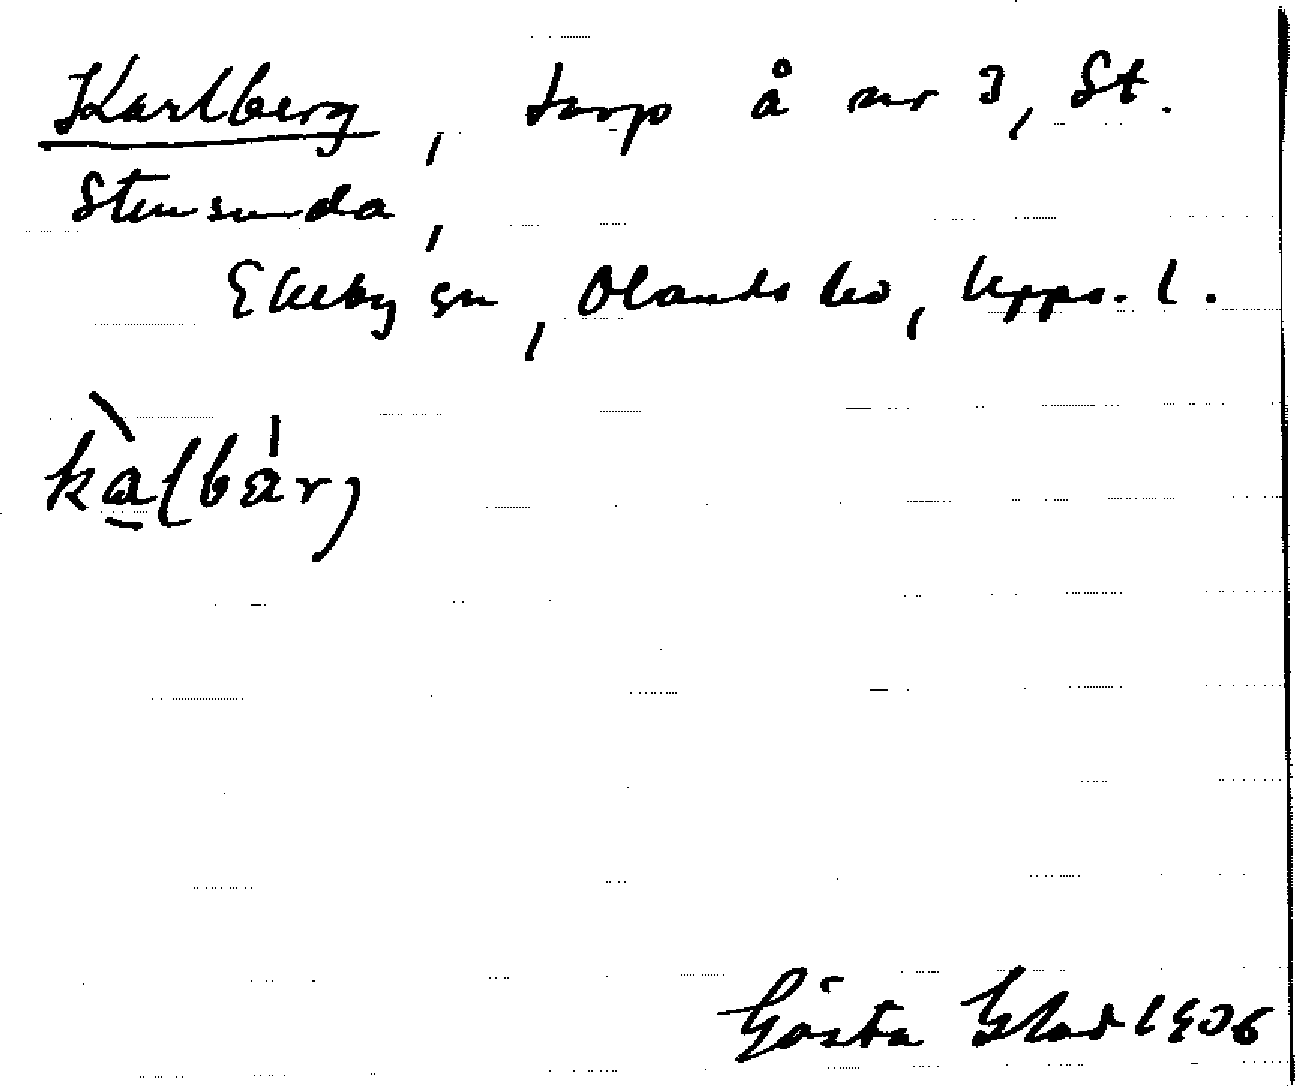 Karlberg, torp å nr 3, St.
Stensunda,
Ekeby sn, Olands hd, Upps. l.
kàlbä́r
Gösta 1906